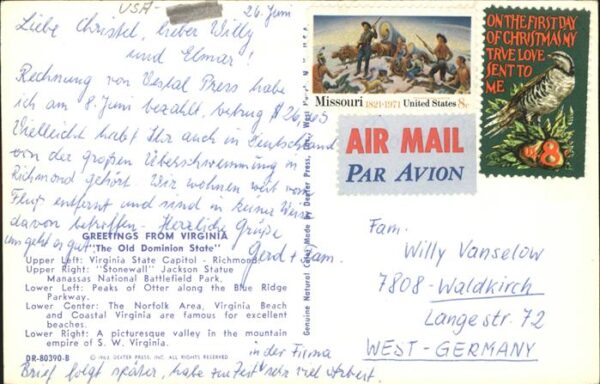 USA-
26. Juni
Liebe Christel, lieber Willy
und Elmar!
Rechnung von Vestal Press habe
ich am 8. Juni bezahlt, betrug $ 26,
Vielleicht habt Ihr auch in Deutschland
von der großen Überschwemmung in
Richmond gehört. Wir wohnen weit vom
Fluß entfernt und sind in keiner Weise
davon betroffen. Herzliche Grüße
uns geht es gut
Gerd + Fam.
GREETINGS FROM VIRGINIA
"The Old Dominion State"
Upper Left: Virginia State Capitol - Richmond
Upper Right: "Stonewall" Jackson Statue
Manassas National Battlefield Park.
Lower Left: Peaks of Otter along the Blue Ridge
Parkway.
Lower Center: The Norfolk Area, Virginia Beach
and Coastal Virginia are famous for excellent
beaches.
Lower Right: A picturesque valley in the mountain
empire of S. W. Virginia.
DR-80390-B
© 1963, DEXTER PRESS, INC. ALL RIGHTS RESERVED
in der Firma
Brief folgt später, habe zur Zeit sehr viel Arbeit.
Genuine Natural Color Made by Dexter Press, Inc., West
Missouri 1821-1971 United States 8c
ON THE FIRST DAY
OF CHRISTMAS MY
TRVE LOVE
SENT TO
ME
8
AIR MAIL
PAR AVION
Fam.
Willy Vanselow
7808-Waldkirch
Langestr. 72
WEST-GERMANY